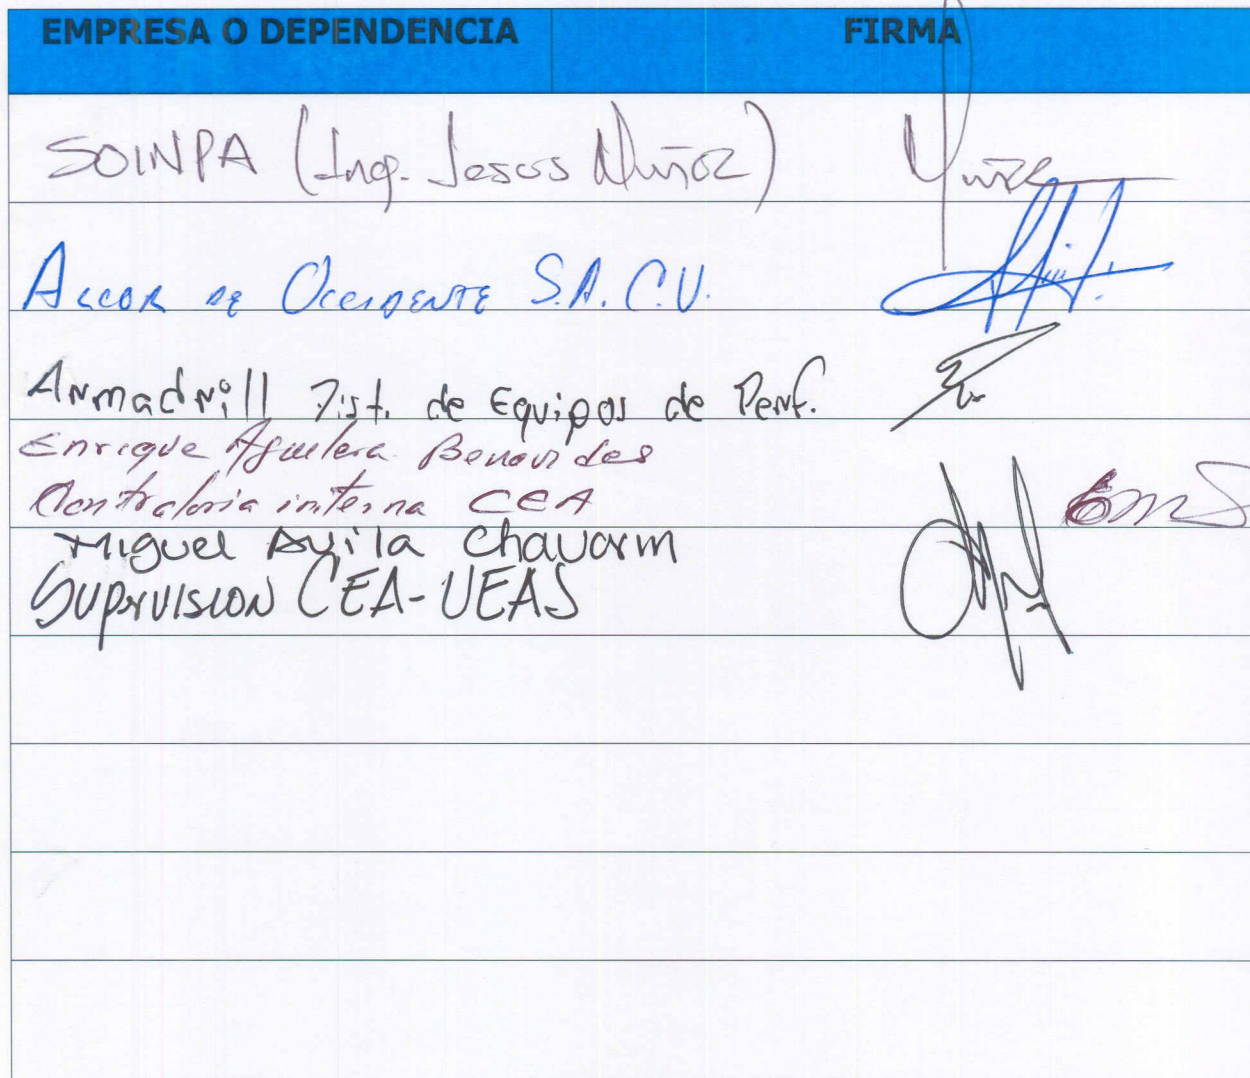 EMPRESA O DEPENDENCIA FIRMA
SOINPA (Ing. Jesus Muñoz)
Alcor de Occidente S.A. C.V.
Armadrill Dist. de Equipos de Perf.
Enrique Aguilera Benavides
Contraloria interna CEA
Miguel Avila Chavarin
Supervision CEA-UEAS